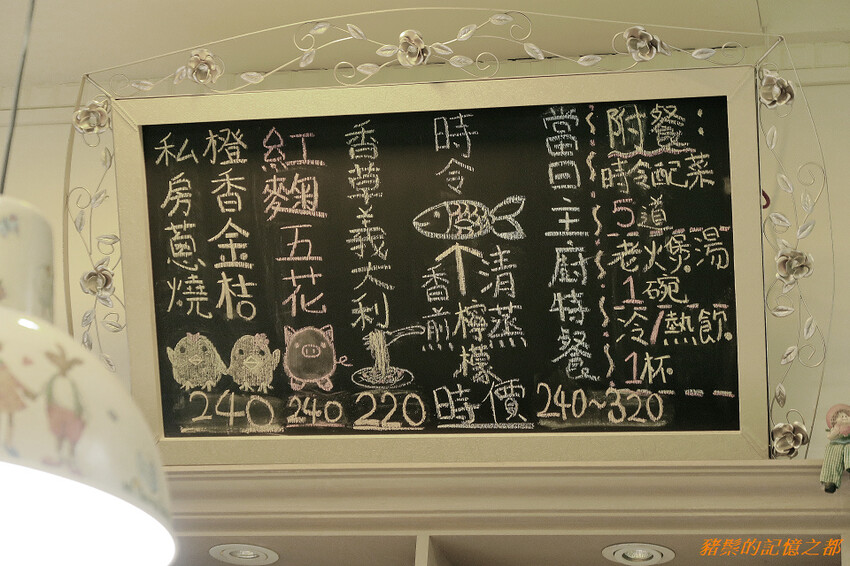 附餐：
時令配菜
5道
老煲湯
1碗
冷/熱飲
1杯
當日主廚特餐
240~320
時令
清蒸
檸檬
香煎
時價
香草義大利
220
紅麴五花
240
橙香金桔
私房蔥燒
240
豬鬃的記憶之都